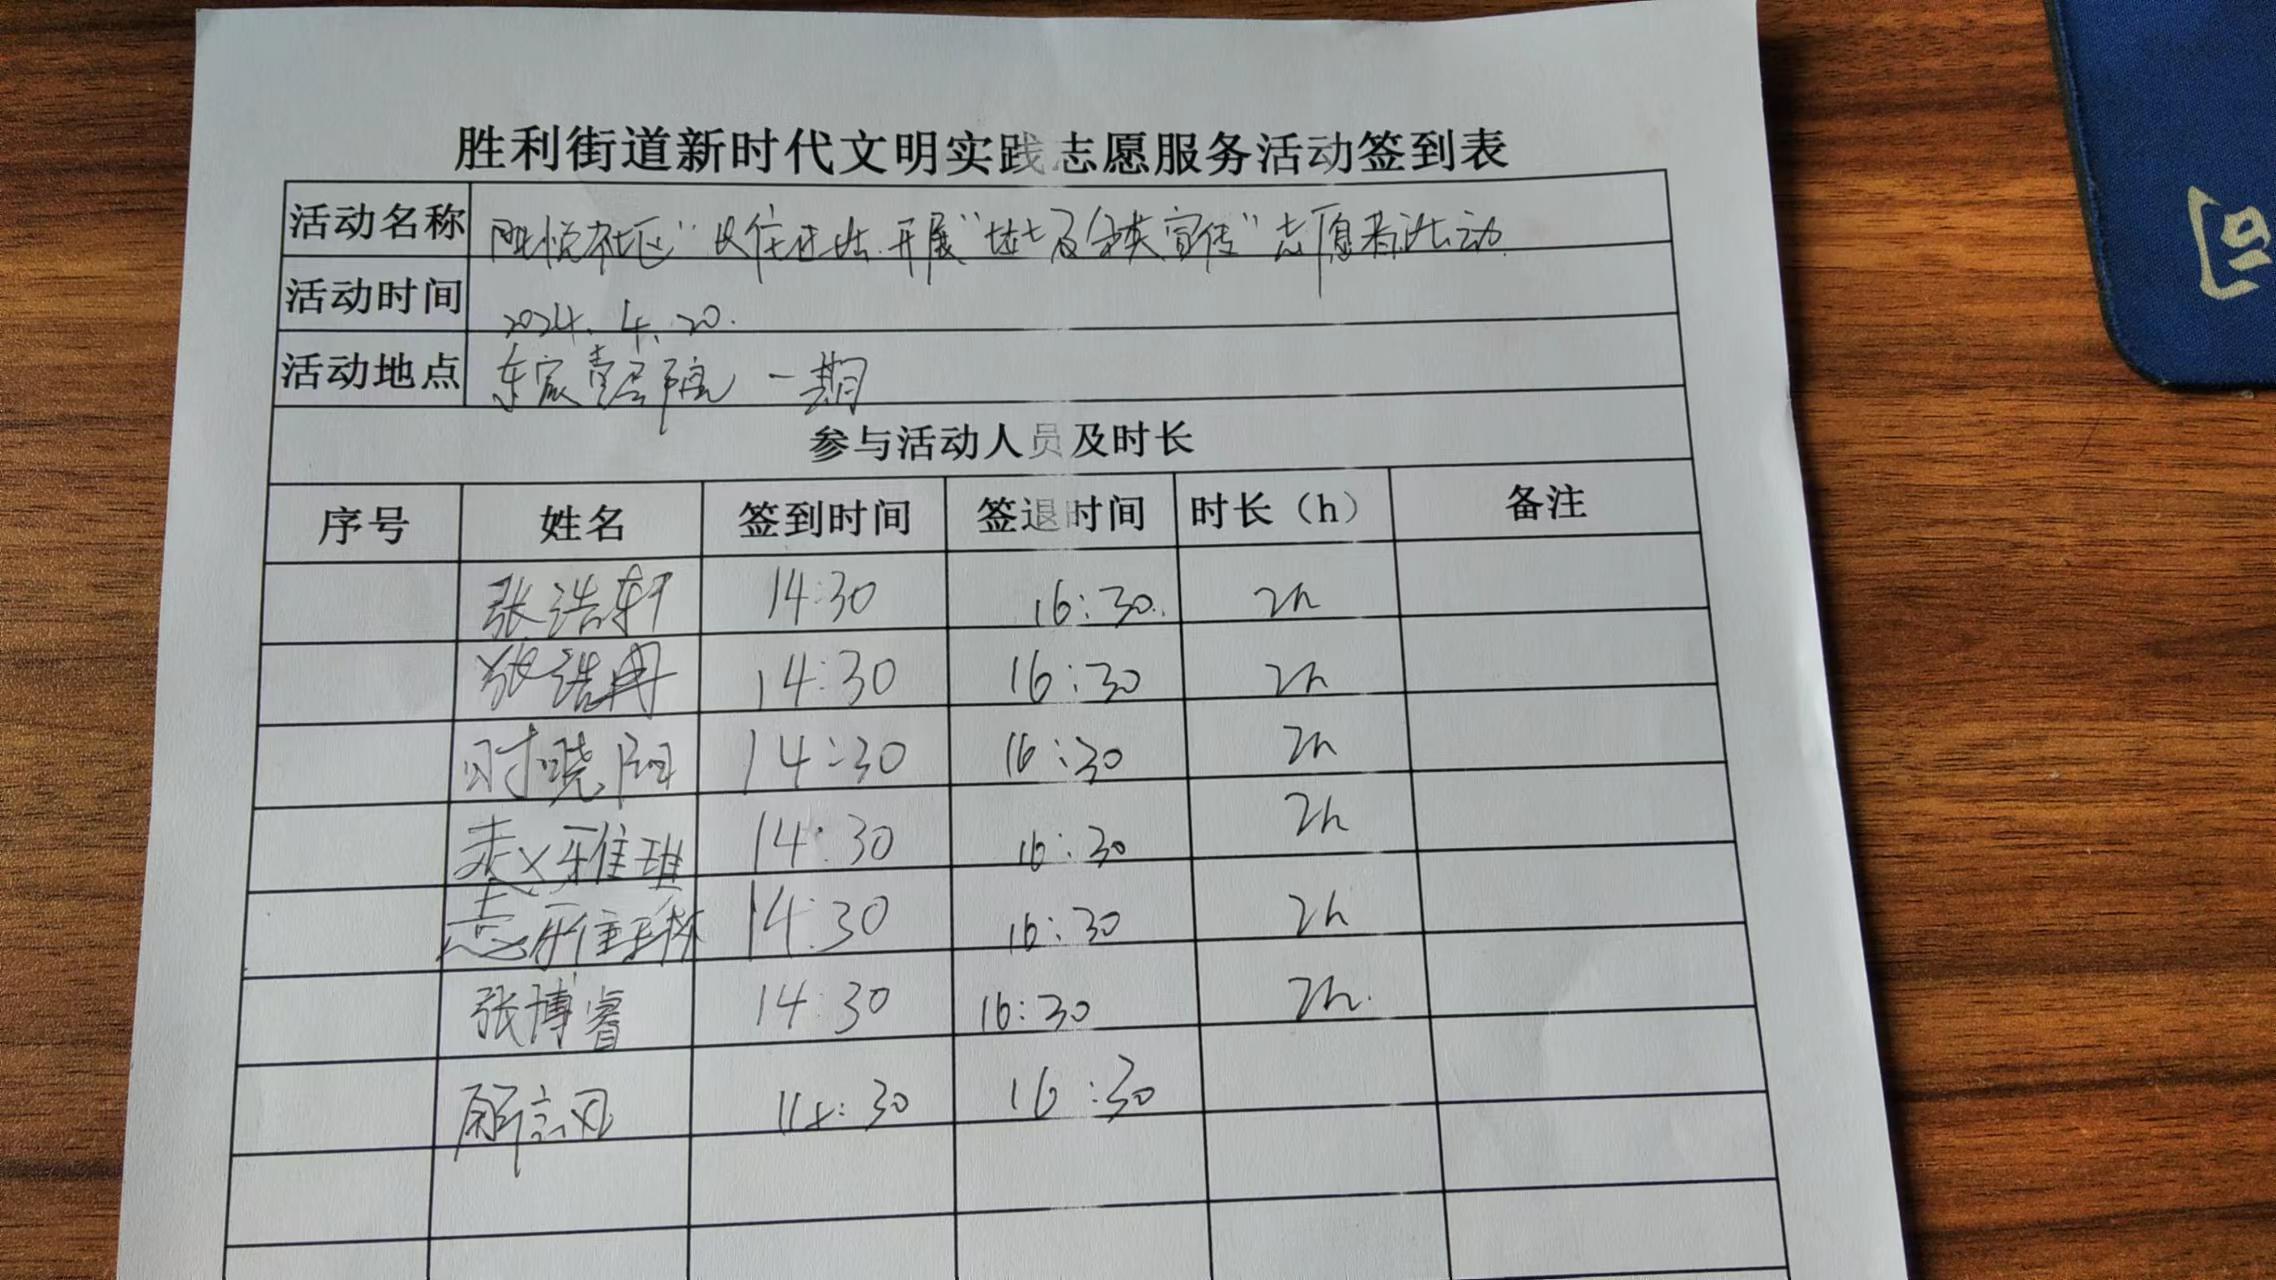 胜利街道新时代文明实践志愿服务活动签到表
活动名称 阳悦社区" 开展"垃圾分类宣传"志愿者活动
活动时间 2024.4.20.
活动地点 一期
参与活动人员及时长
序号 姓名 签到时间 签退时间 时长（h） 备注
张浩轩 14:30 16:30. 2h
张浩冉 14:30 16:30 2h
时晓阳 14:30 16:30 2h
赵雅琪 14:30 16:30 2h
14:30 16:30 2h
张博睿 14:30 16:30 2h.
14:30 16:30